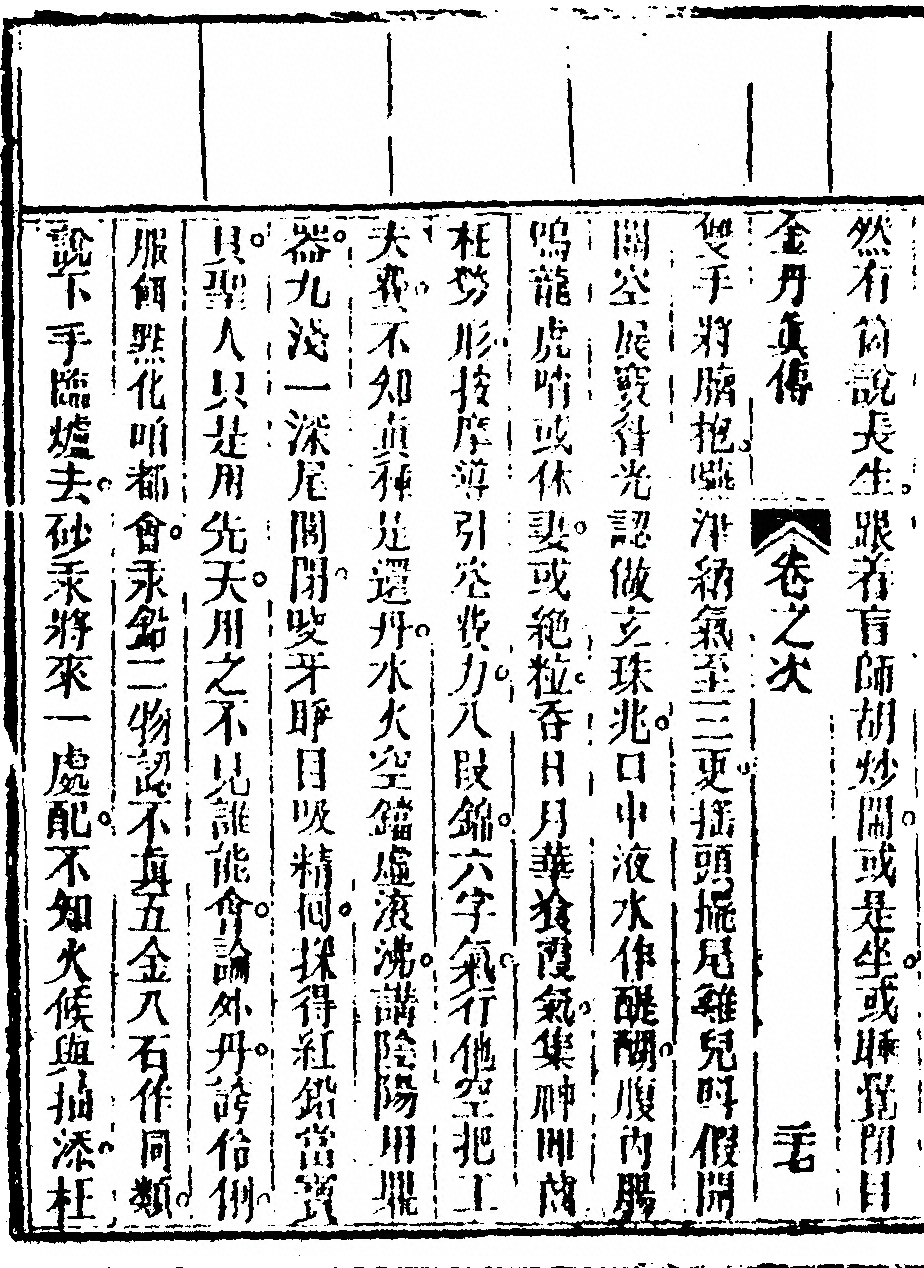 然有箇說長生跟着盲師胡炒鬧或是坐或睡覺閉目
金丹眞傳 卷之次 三七
雙手將臍抱嚥津納氣至三更揺頭擺尾雞兒呌假開
關空展竅眢光認做玄珠兆口中液水作醍醐腹內腸
鳴龍虎哨或休妻或絶粒吞日月華飡霞氣集神間
枉勞形按摩導引空費力八段錦六字氣行他空把工
夫費不知眞種是還丹水火空鐺虛滾沸講陰陽用鼎
器九淺一深尾閭閉咬牙睜目吸精囘採得紅鉛當寶
貝聖人只是用先天用之不見誰能會論外丹誇伶俐
服餌㸃化咱都會汞鉛二物認不真五金八石作同類
說下手臨爐去砂汞將來一處配不知火候與抽添枉